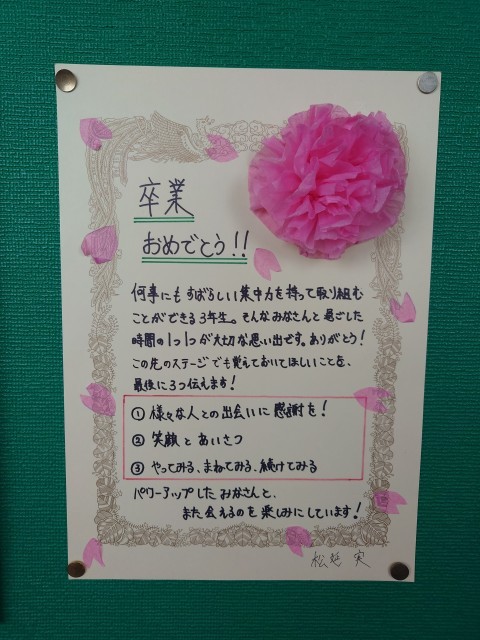 卒業
おめでとう!!
何事にもすばらしい集中力を持って取り組む
ことができる3年生。そんなみなさんと過ごした
時間の1つ1つが大切な思い出です。ありがとう!
この先のステージでも覚えておいてほしいことを、
最後に3つ伝えます!
① 様々な人との出会いに感謝を!
② 笑顔とあいさつ
③ やってみる、まねてみる、続けてみる
パワーアップしたみなさんと、
また会えるのを楽しみにしています!
松延 実